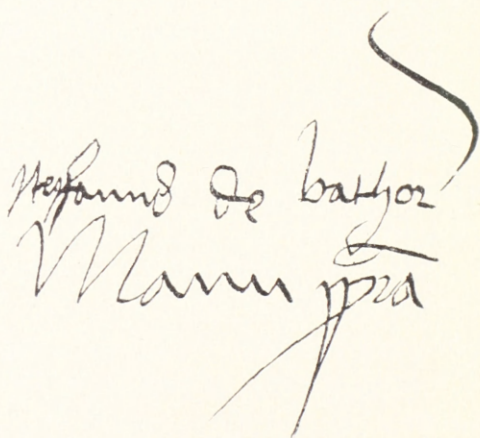 Stefanus de bathor
Manu ppria